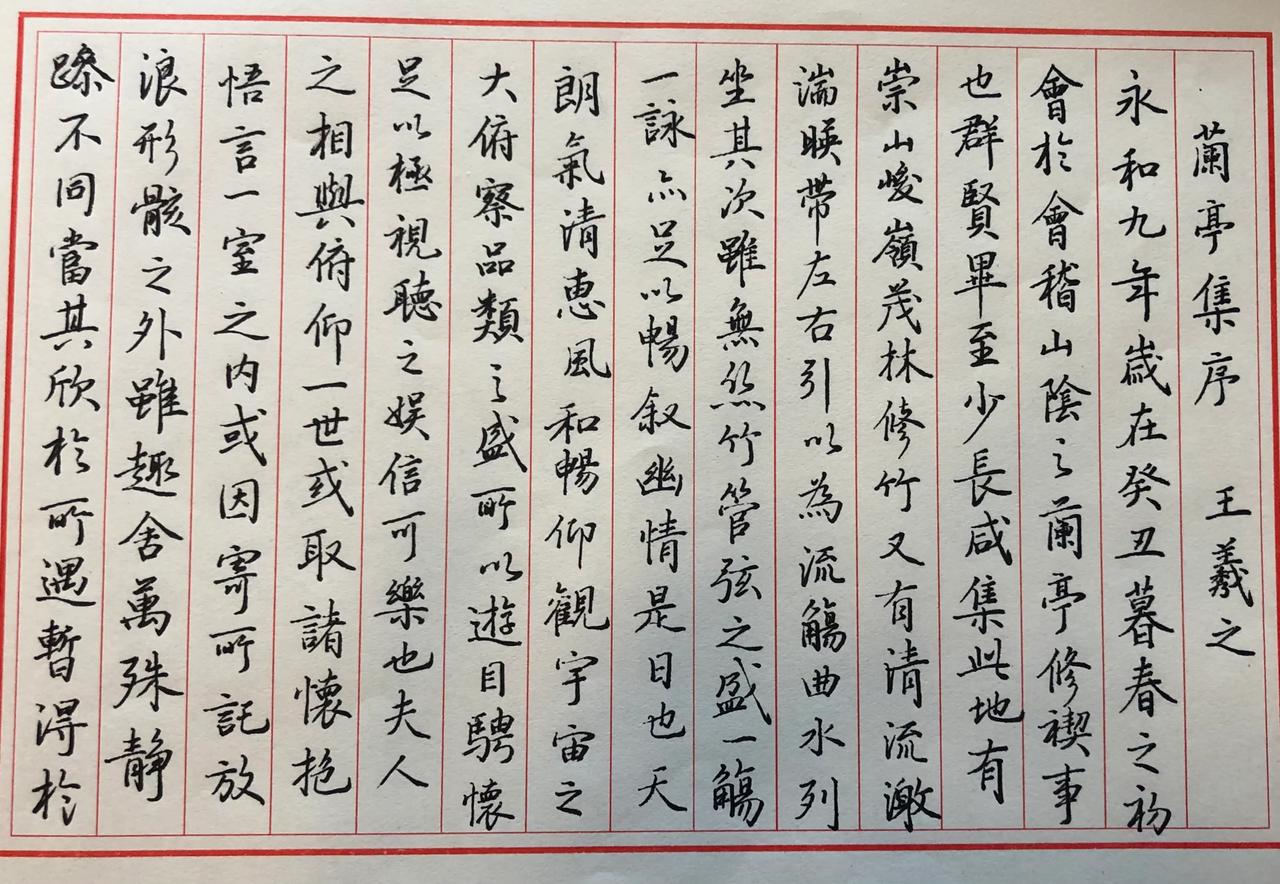 蘭亭集序 王羲之
永和九年歲在癸丑暮春之初
會於會稽山陰之蘭亭修禊事
也群賢畢至少長咸集此地有
崇山峻嶺茂林修竹又有清流激
湍暎帶左右引以為流觴曲水列
坐其次雖無絲竹管弦之盛一觴
一詠亦足以暢叙幽情是日也天
朗氣清惠風和暢仰觀宇宙之
大俯察品類之盛所以遊目騁懷
足以極視聽之娛信可樂也夫人
之相與俯仰一世或取諸懷抱
悟言一室之內或因寄所託放
浪形骸之外雖趣舍萬殊静
躁不同當其欣於所遇暫得於